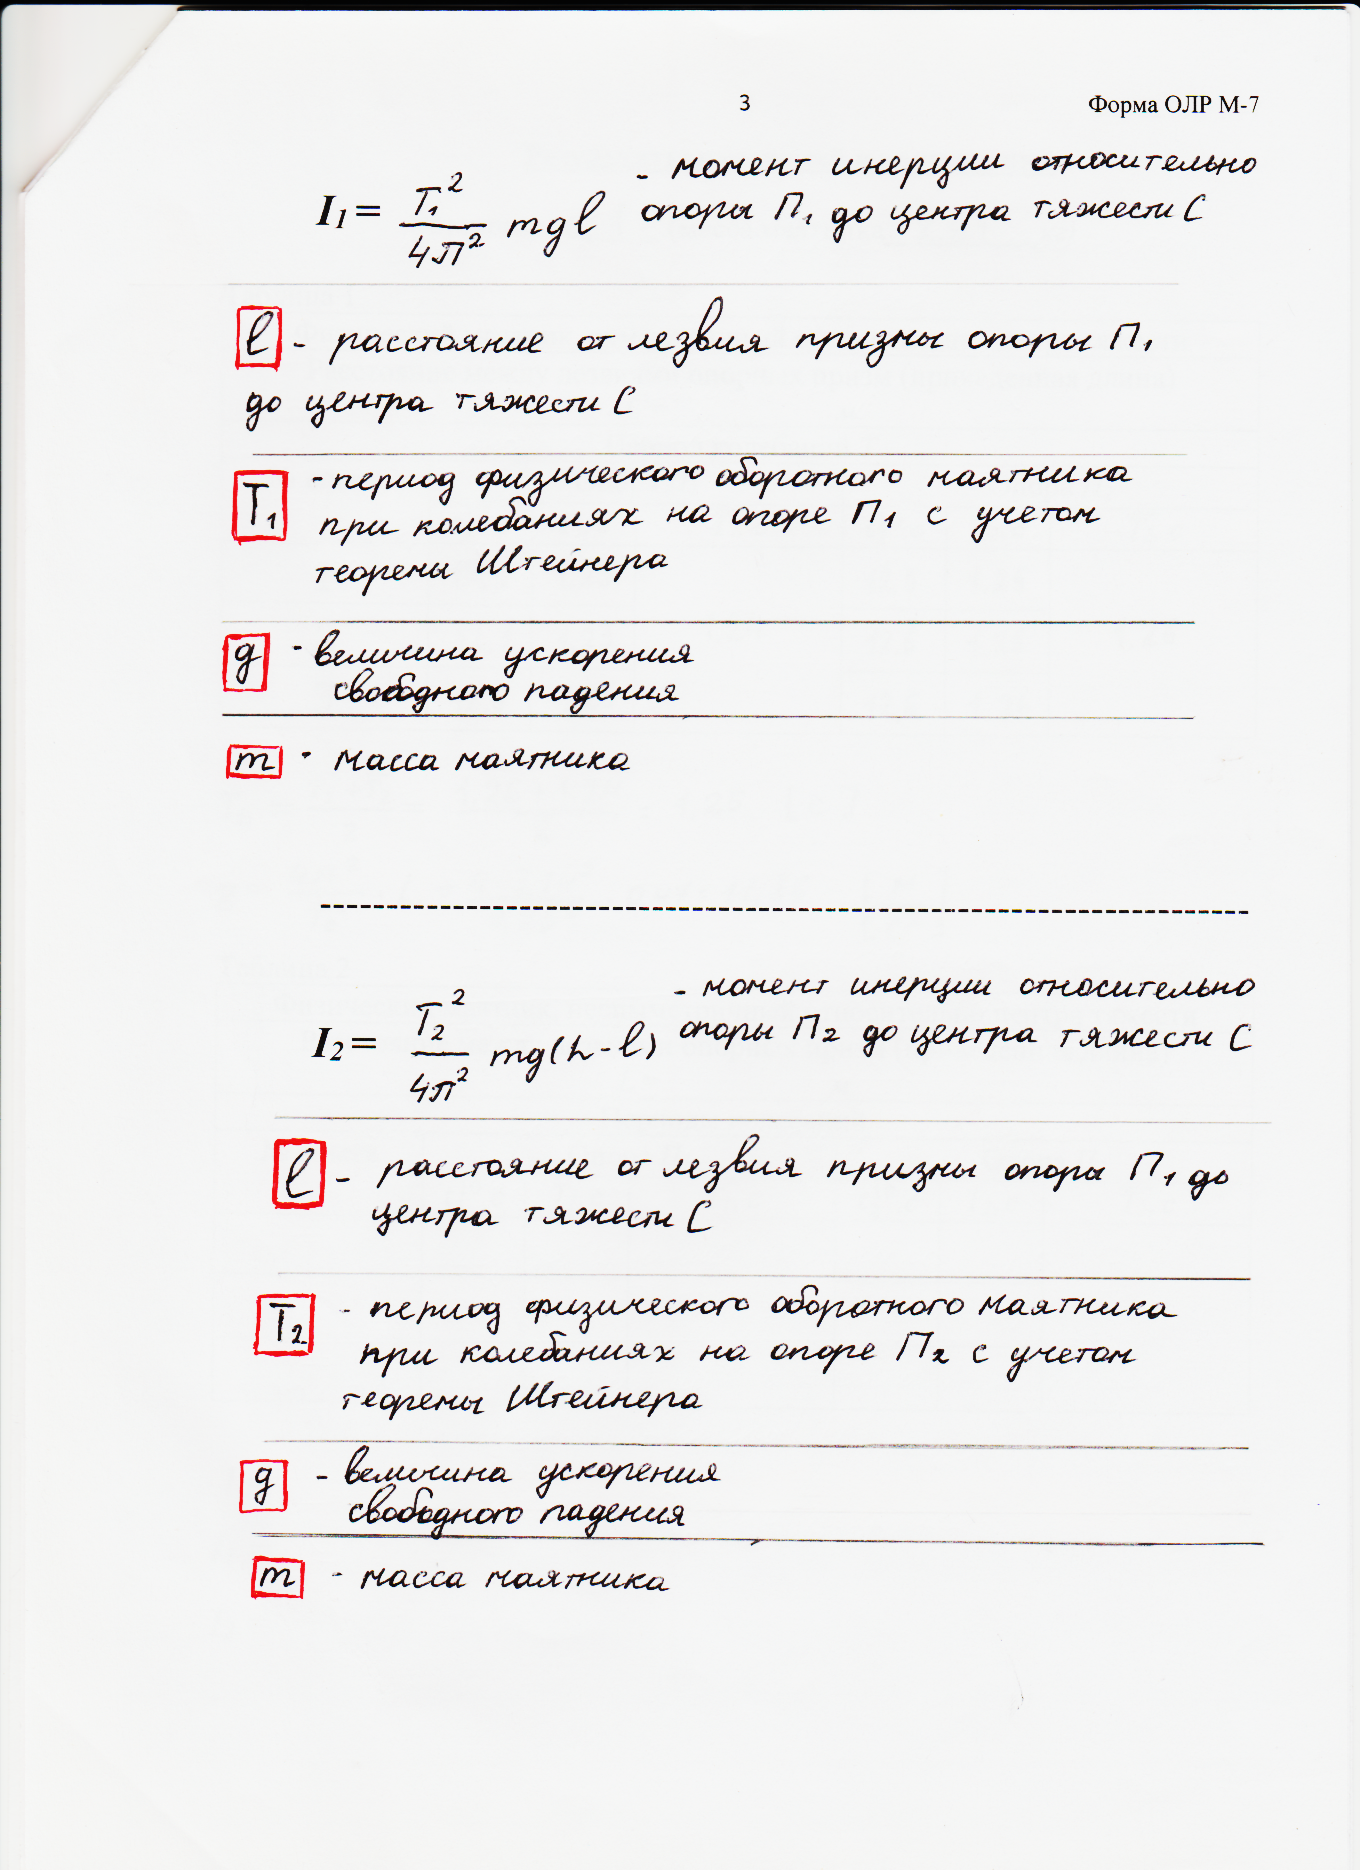 3
Форма ОЛР М-7
I₁ = T₁²/4π² mgl - момент инерции относительно
опоры П₁ до центра тяжести С
l - расстояние от лезвия призмы опоры П₁
до центра тяжести С
T₁ - период физического оборотного маятника
при колебаниях на опоре П₁ с учетом
теоремы Штейнера
g - величина ускорения
свободного падения
m - масса маятника
I₂ = T₂²/4π² mg(h-l) - момент инерции относительно
опоры П₂ до центра тяжести С
l - расстояние от лезвия призмы опоры П₁ до
центра тяжести С
T₂ - период физического оборотного маятника
при колебаниях на опоре П₂ с учетом
теоремы Штейнера
g - величина ускорения
свободного падения
m - масса маятника